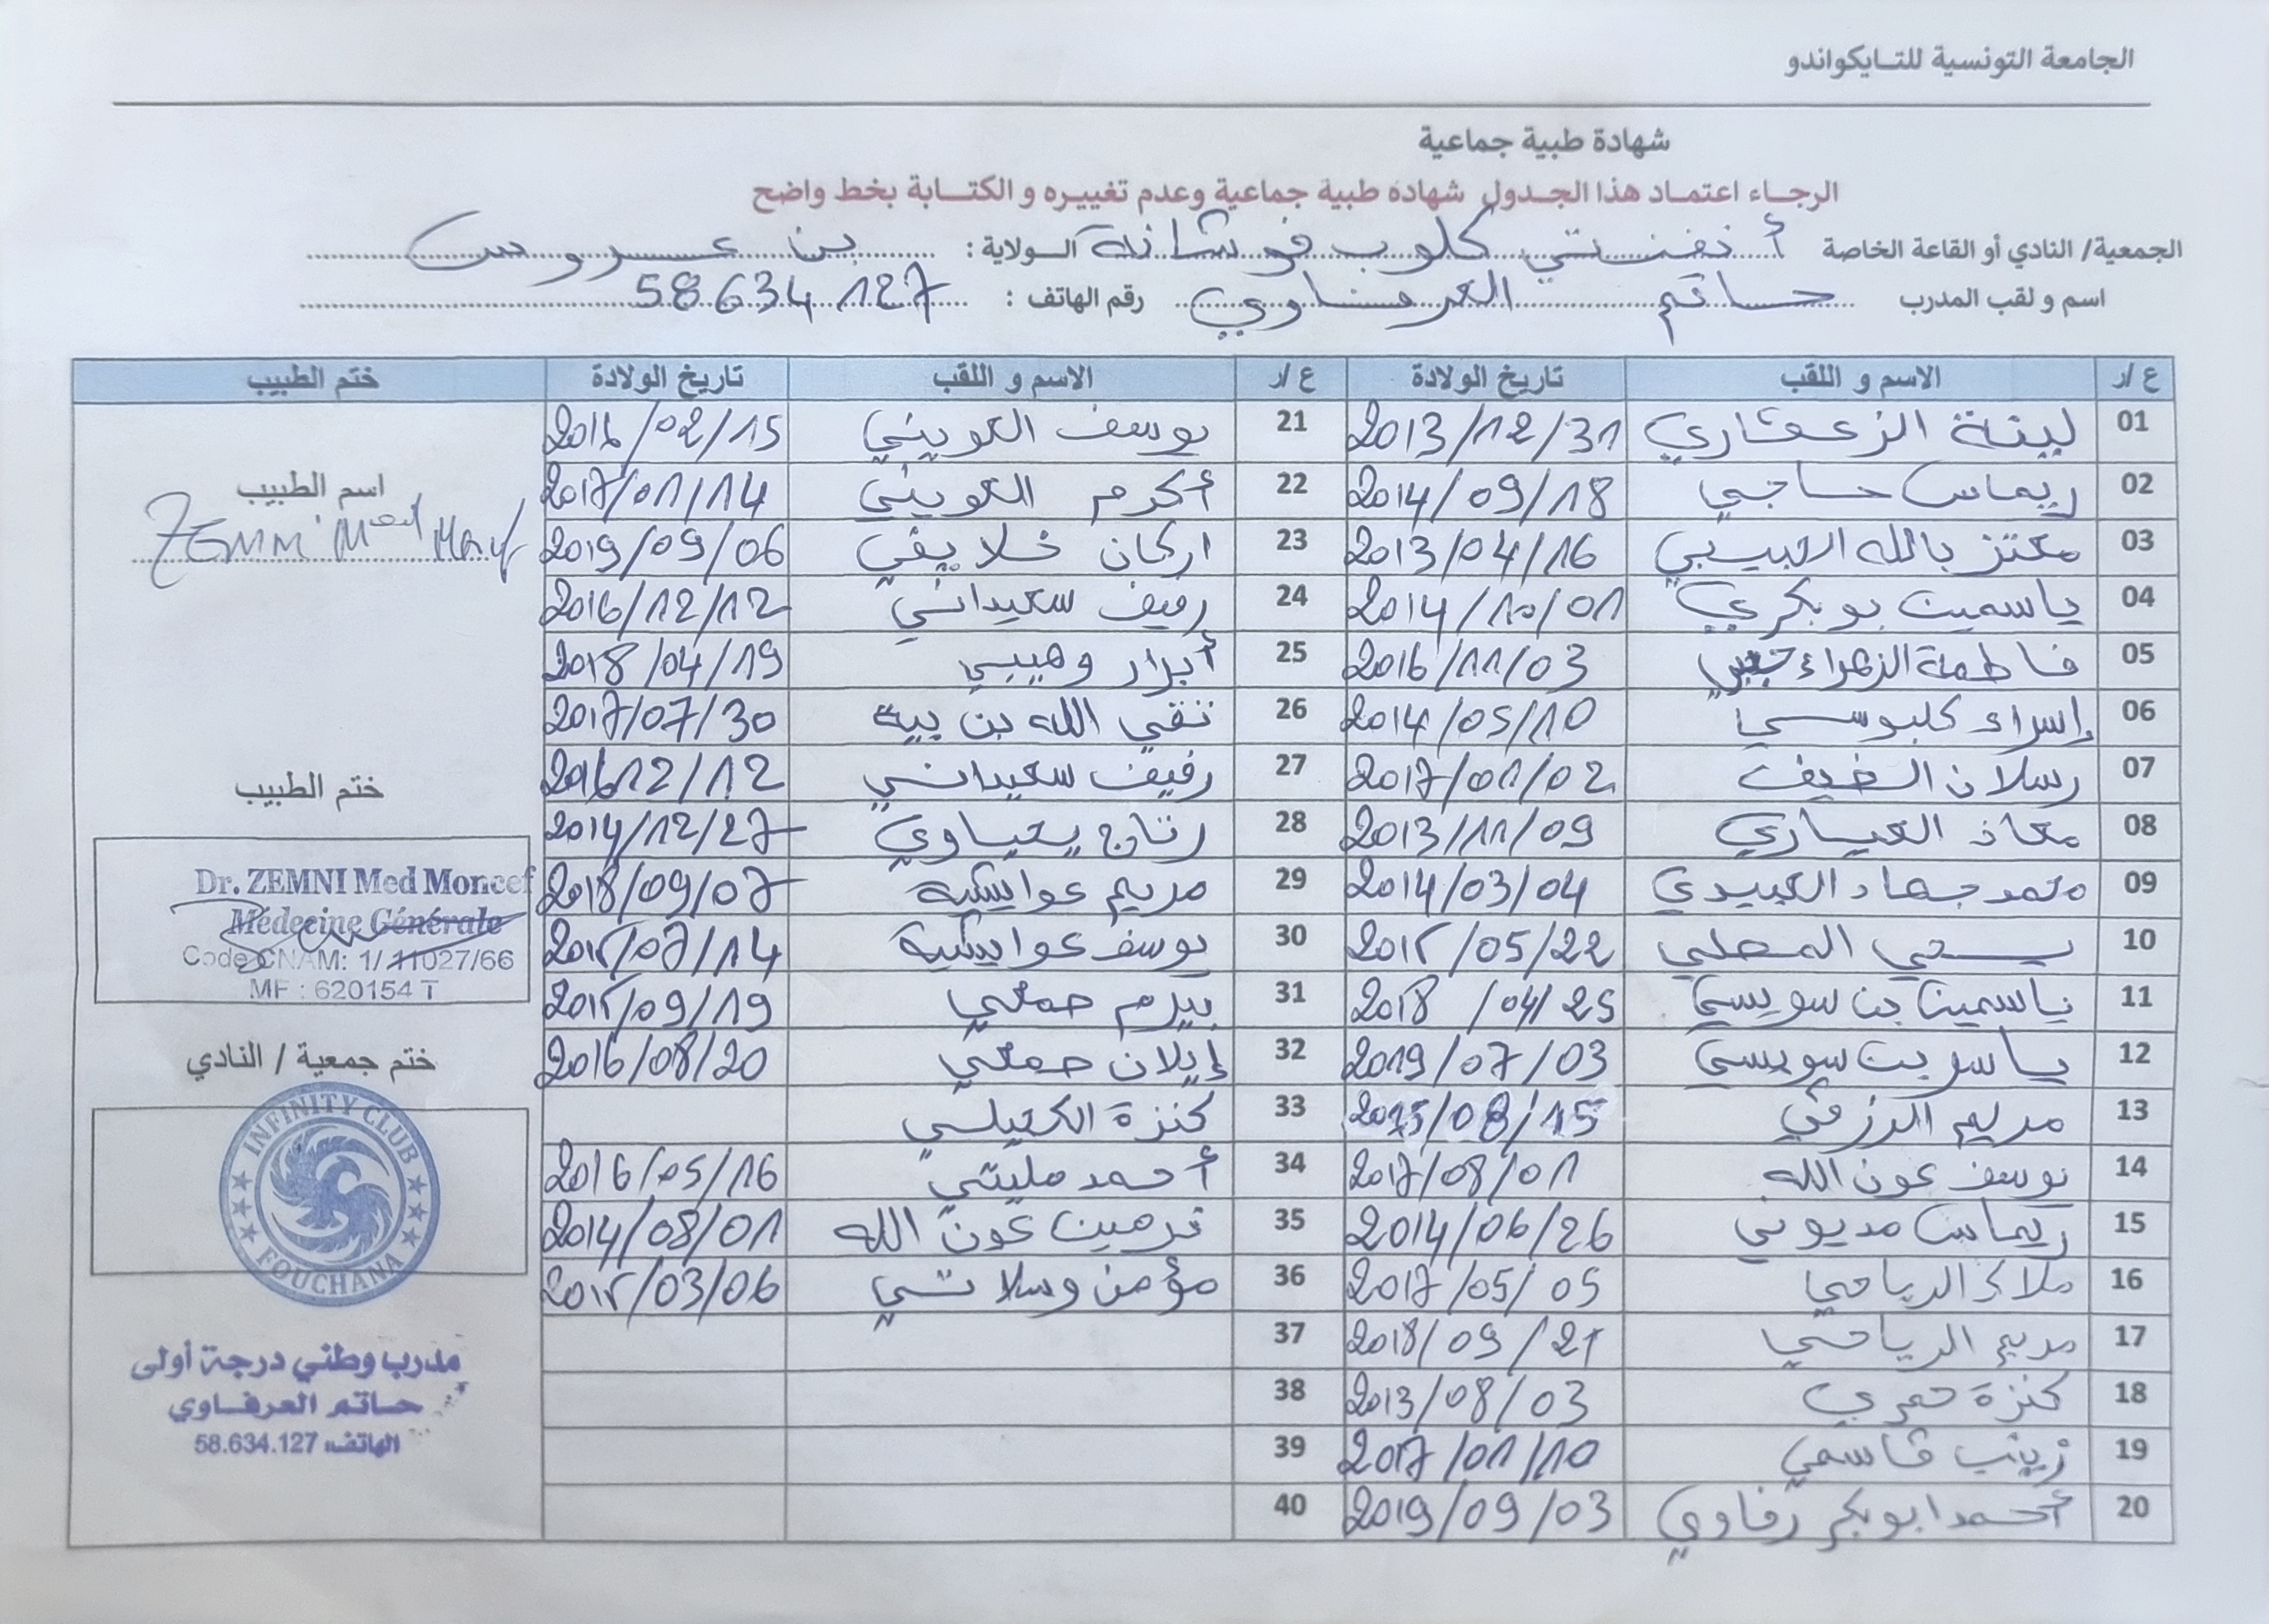 الجامعة التونسية للتايكواندو
شهادة طبية جماعية
الرجاء اعتماد هذا الجدول شهادة طبية جماعية وعدم تغييره و الكتابة بخط واضح
الجمعية/ النادي أو القاعة الخاصة أنفنتي كلوب فوشانة الولاية : بن عروس
اسم و لقب المدرب حاتم العرفاوي رقم الهاتف : 58634127
ع /ر الاسم و اللقب تاريخ الولادة ع /ر الاسم و اللقب تاريخ الولادة ختم الطبيب
01 لبنة الزعفاري 2013/12/31 21 يوسف الكويني 2016/02/15
02 ريماس حاجي 2014/09/18 22 أكرم الكويني 2017/01/14
اسم الطبيب
ZEMNI Med
03 معتز بالله 2013/04/16 23 اركان خلايفي 2019/09/06
04 ياسمين بوبكري 2014/10/01 24 رفيف سعيداني 2016/12/12
05 فاطمة الزهراء 2016/11/03 25 أبرار وهيبي 2018/04/19
06 إسراء كلبوسي 2014/05/10 26 تقي الله بن بية 2017/07/30
07 رسلان الضيف 2017/01/02 27 رفيف سعيداني 201612/12
ختم الطبيب
08 معاذ العياري 2013/11/09 28 رتاج يحياوي 2014/12/27
09 محمد جهاد العبيدي 2014/03/04 29 مريم عوايشية 2018/09/07
10 يحي المحلي 2015/05/22 30 يوسف عوايشية 2015/07/14
Dr. ZEMNI Med Moncef
Médecine Générale
Code CNAM: 1/ 11027/66
MF : 620154 T
11 ياسمين بن سويسي 2018/04/25 31 بيرم حمي 2015/09/19
12 ياسر بن سويسي 2019/07/03 32 إيلان حمي 2016/08/20
ختم جمعية / النادي
13 مريم الرزقي 2015/08/15 33 كنزة
14 يوسف عون الله 2017/08/01 34 أحمد مليتي 2016/05/16
15 ريماس مديوني 2014/06/26 35 نرمين عون الله 2014/08/01
16 ملاك الرياحي 2017/05/05 36 مؤمن وسلاتي 2015/03/06
INFINITY CLUB
FOUCHANA
17 مريم الرياحي 2018/09/21 37
18 كنزة عمري 2013/08/03 38
19 زينب قاسمي 2017/01/10 39
20 أحمد ابوبكر رفاوي 2019/09/03 40
مدرب وطني درجة أولى
حاتم العرفاوي
الهاتف: 58.634.127